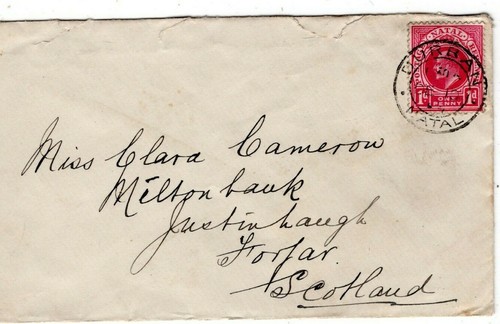 POSTAGE NATAL REVENUE
1d ONE PENNY 1d
DURBAN
NATAL
Miss Clara Cameron
Miltonbank
Justinhaugh
Forfar.
Scotland